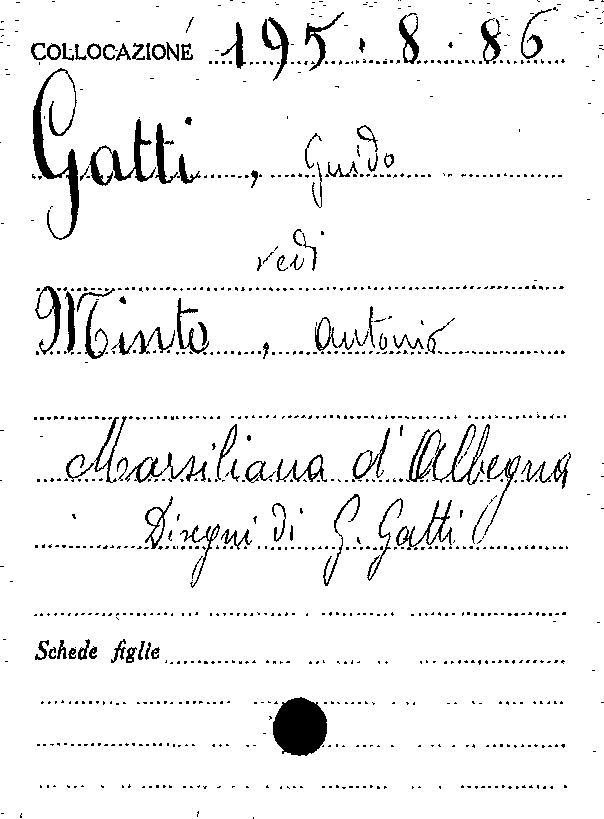 COLLOCAZIONE 195.8.86
Gatti, Guido
vedi
Minto, Antonio
Marsiliana d'Albegna
Disegni di G. Gatti
Schede figlie